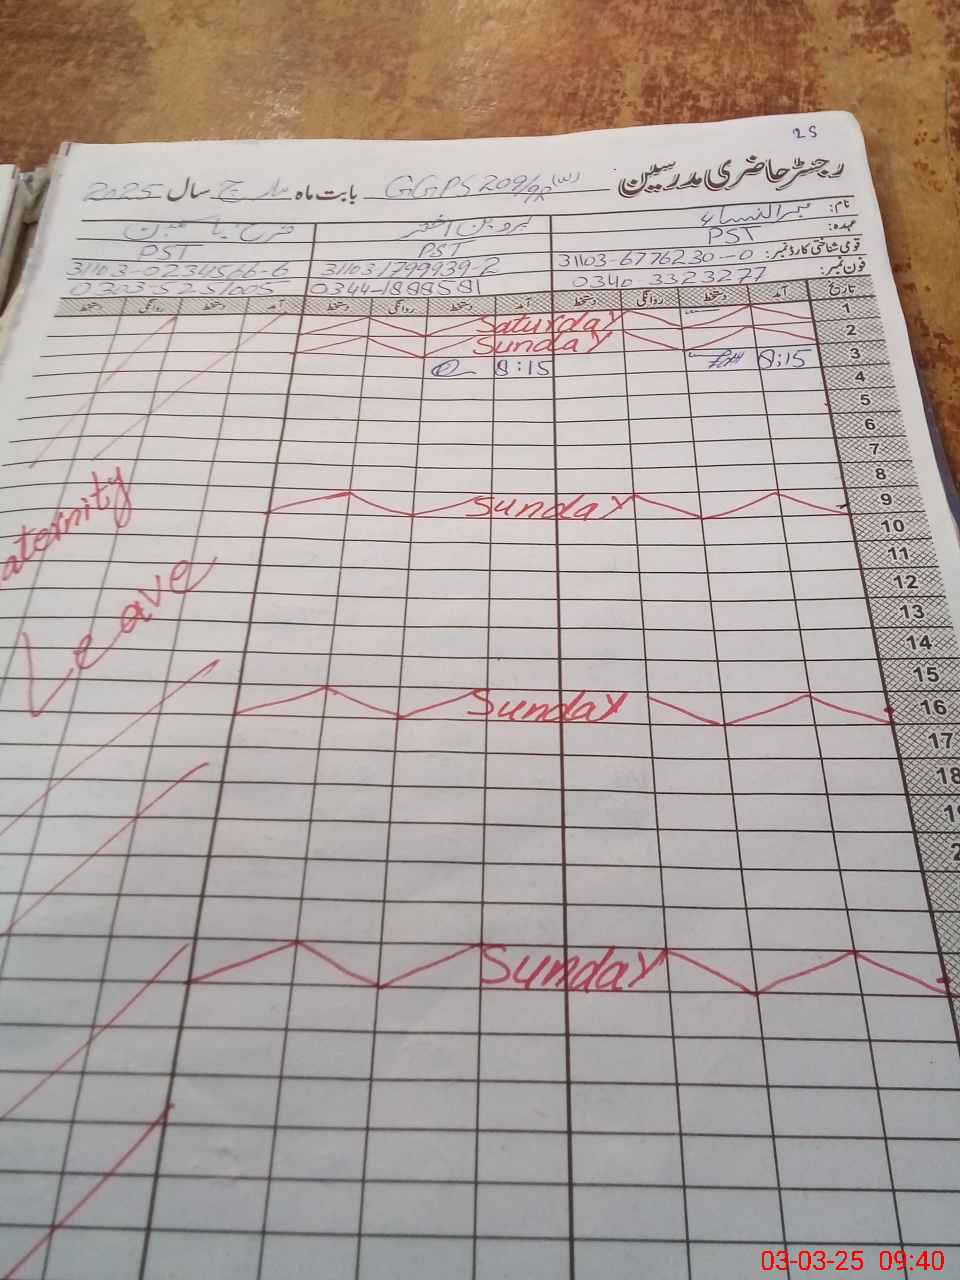 25
رجسٹر حاضری مدرسین GGPS 209/9R (W) بابت ماہ مارچ سال 2025
نام:
عہدہ: PST PST PST
قومی شناختی کارڈ نمبر: 31103-6776230-0 31103 1799939-2 31103-0234566-6
فون نمبر: 0340 3323277 0344-1888581
تاریخ آمد دستخط روانگی دستخط آمد دستخط روانگی دستخط آمد دستخط روانگی دستخط
1 Saturday
2 Sunday
3 8:15 8:15
4
5
6
7
8
9 Sunday
10
11
12
13
14
15
16 Sunday
17
18
Sunday
aternity
Leave
03-03-25 09:40